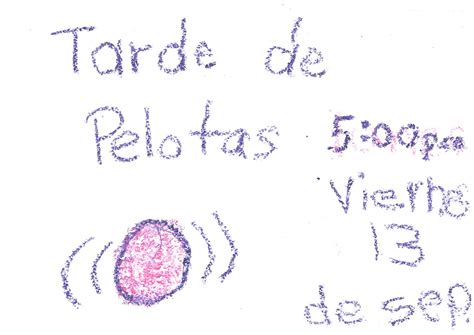 Tarde de
Pelotas
5:00pm
Viernes
13
de sep.